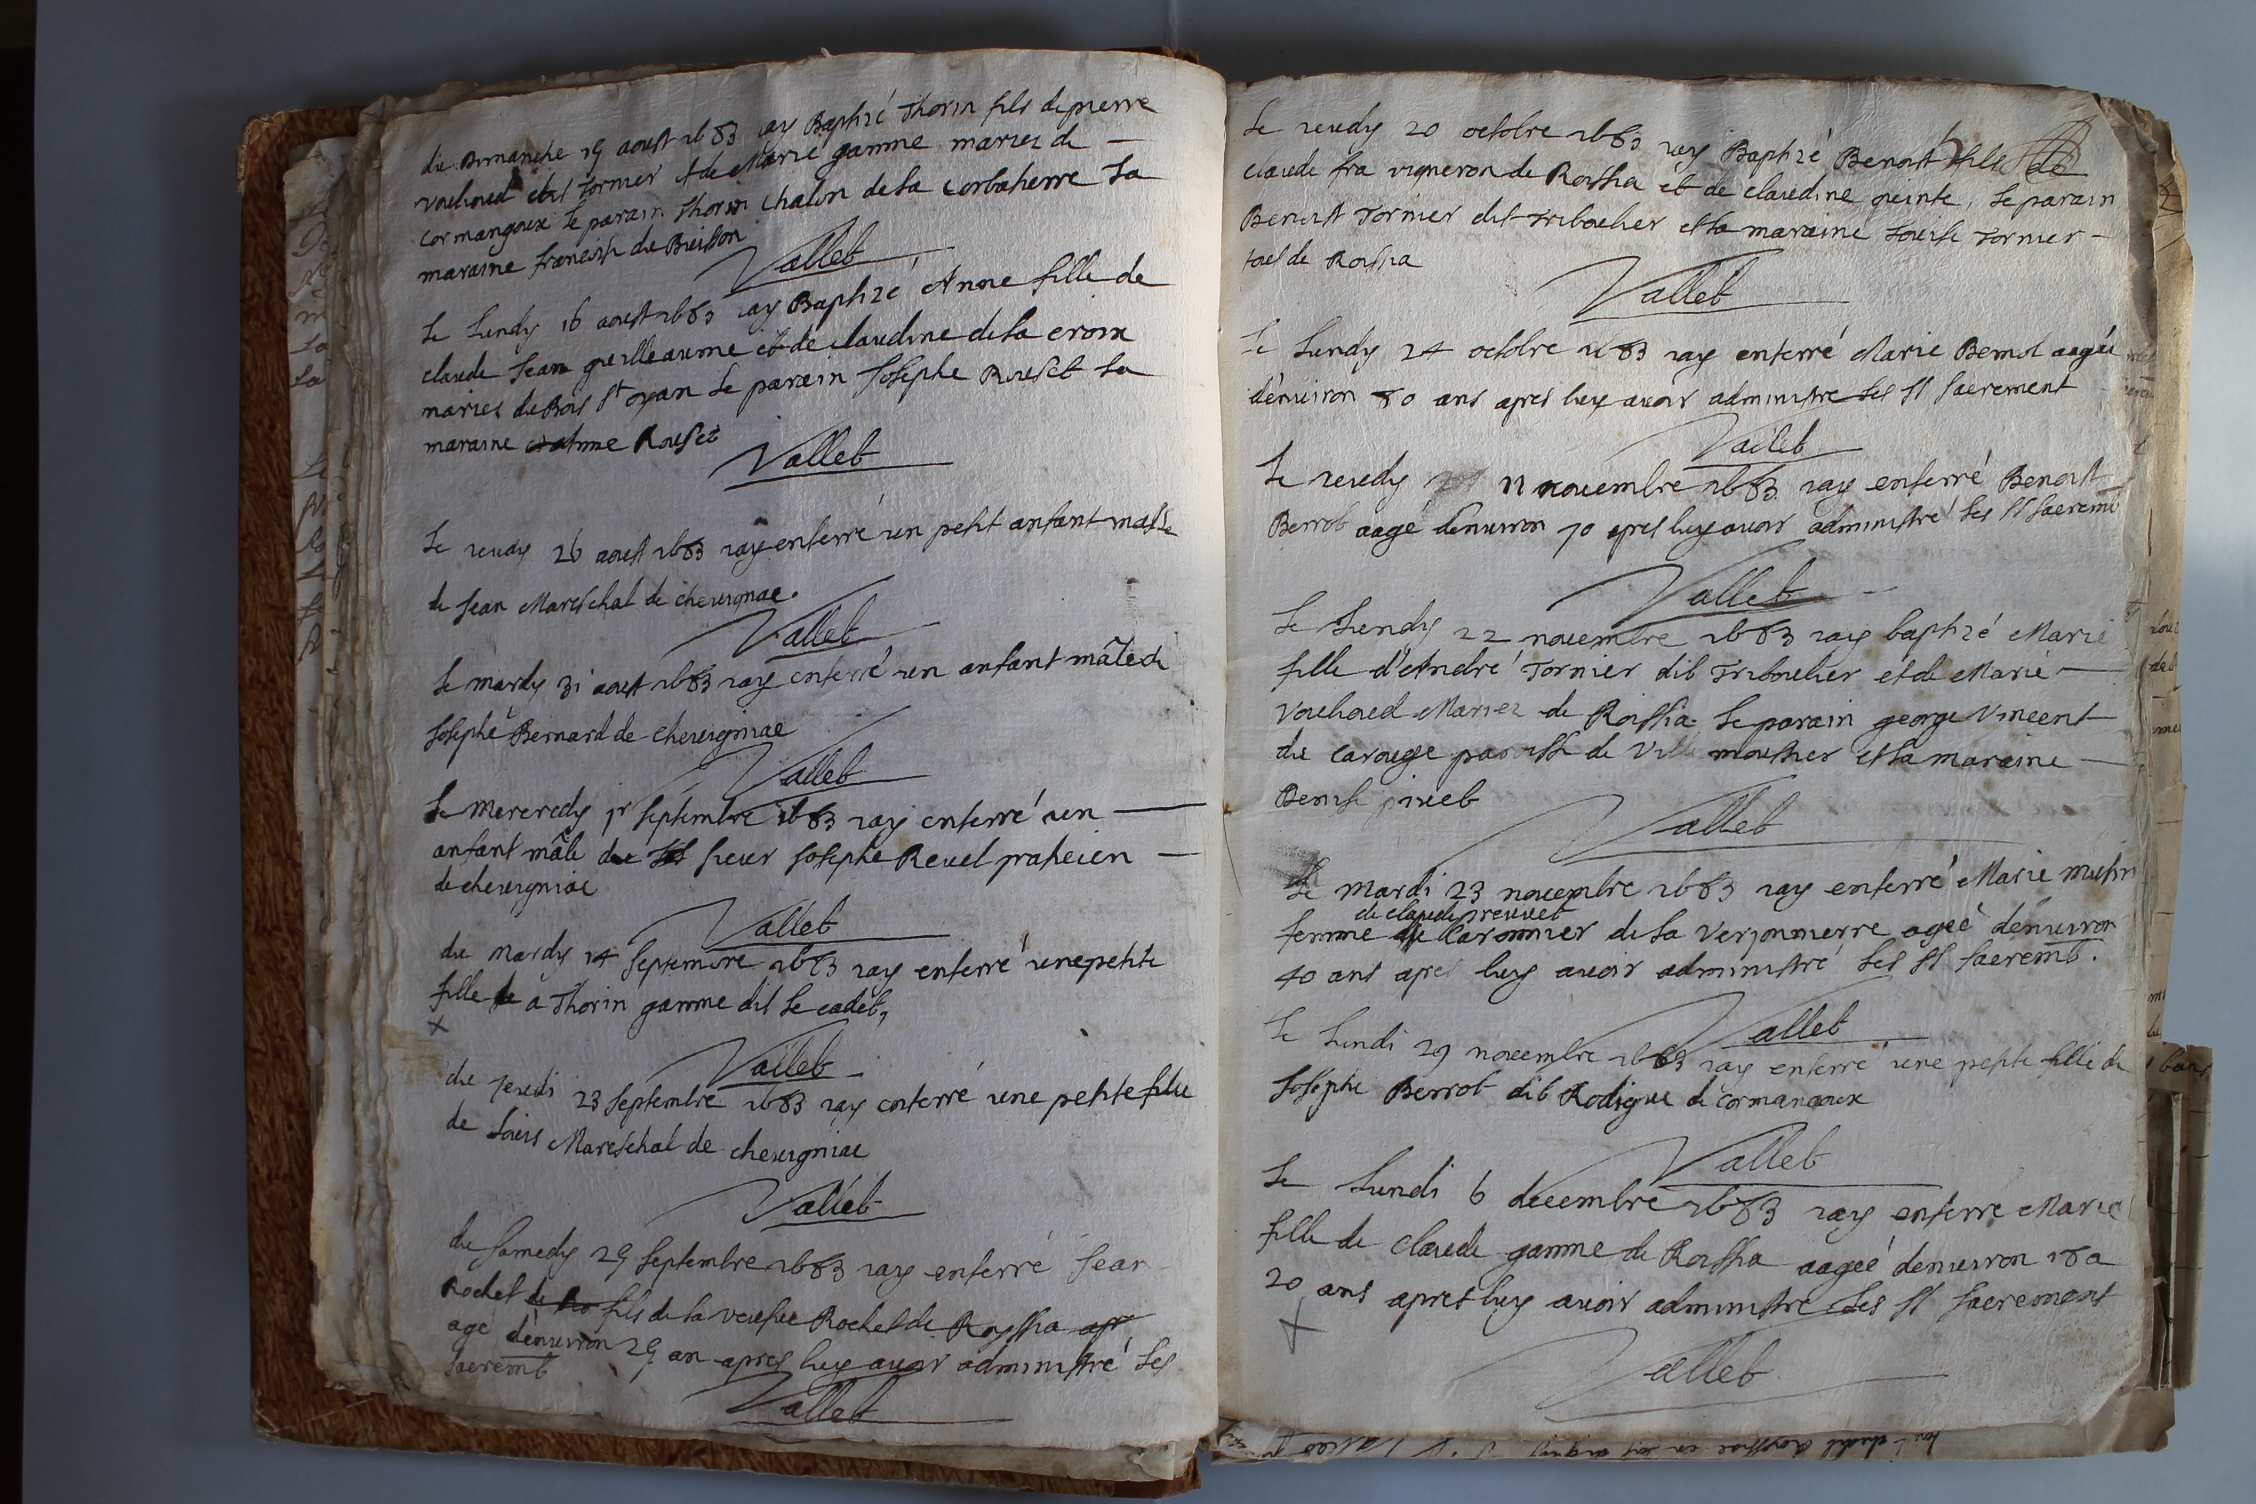 du Dimanche 15 aoust 1683 iay Baptizé Thorin fils de pierre
vouhoud dit Tornier et de Marie gamme mariez de
cormangoux le parain Thorin Chalon de la Corbatierre La
maraine francoise du Buisson
Vallet
Le Lundy 16 aoust 1683 iay Baptizé Anne fille de
claude Jean guilleaume et de claudine de la croix
mariez du Bois St oyan Le parain Josephe Rouset La
maraine Anne Rouset
Vallet
Le ieudy 26 aoust 1683 iay enterré un petit anfant masle
de Jean Mareschal de cheuigniae.
Vallet
Le mardy 31 aoust 1683 iay enterré un anfant mâle de
Josephe Bernard de cheuigniae
Vallet
Le mercredy 1r septembre 1683 iay enterré un
anfant mâle du sieur Josephe Reuel praticien
de cheuigniae
Vallet
du Mardy 14 septembre 1683 iay enterré une petite
fille a Thorin gamme dit le cadet,
Vallet
du jeudi 23 septembre 1683 iay enterré une petite fille
de Louis Mareschal de cheuigniae
Vallet
du samedy 25 septembre 1683 iay enterré Jean
Rochet fils de la veufue Rochet de Royssia
agé denuiron 25 an apres luy auoir administré les
sacremt
Vallet
Le ieudy 20 octobre 1683 iay Baptizé Benoist fils de
claude fra vigneron de Roissia et de claudine quinte, le parain
Benoist Tornier dit Triboulier et la maraine Louise Tornier
tous de Roissia
Vallet
Le Lundy 24 octobre 1683 iay enterré Marie Bemol aagée
denuiron 80 ans apres luy auoir administre les SS sacrement
Vallet
Le ieudy 11 nouembre 1683 iay enterré Benoist
Berrot aagé denuiron 70 apres luy auoir administré les SS sacremt
Vallet
Le Lundy 22 nouembre 1683 iay baptizé Marie
fille d'André Tornier dit Triboulier et de Marie
Vouhoud Mariez de Roissia Le parain george Vincent
du carouge paroisse de Ville moustier et la maraine
Benoiste piuet
Vallet
Le mardi 23 nouembre 1683 iay enterré Marie mutin
de claude preuuet
femme du Caronnier de la Verjonnierre ageé denuiron
40 ans apres luy auoir administré les SS sacremt.
Vallet
Le Lundi 29 nouembre 1683 iay enterré une petite fille de
Josephe Berrot dit Rodigue de cormangoux
Vallet
Le Lundi 6 decembre 1683 iay enterré Marie
fille de claude gamme de Roissia aageé denuiron 18 a
20 ans apres luy auoir administre les SS sacrement
Vallet